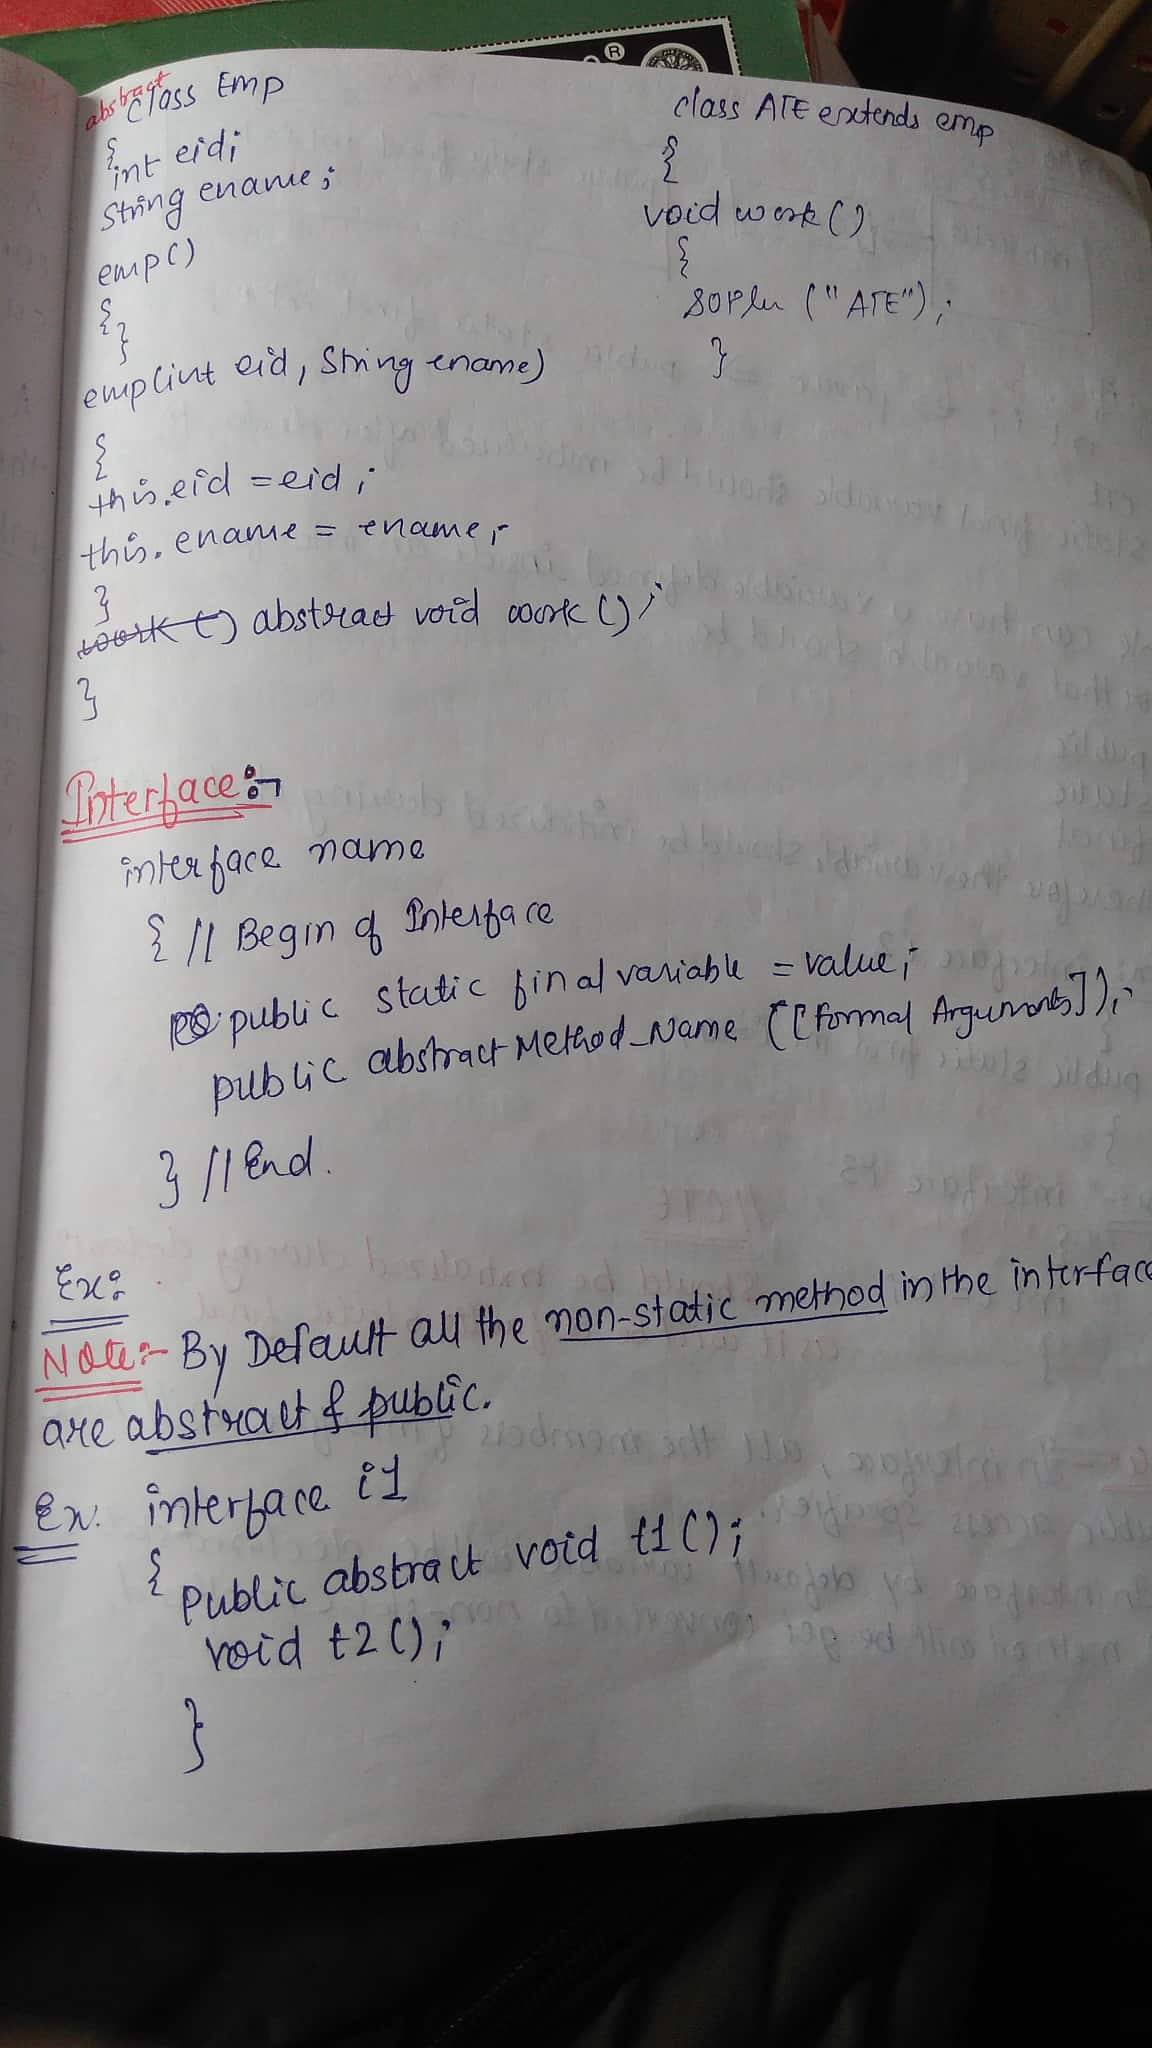 abstract
class Emp
{
int eid;
String ename;
emp()
{
}
emp(int eid, String ename)
{
this.eid = eid;
this.ename = ename;
}
work () abstract void work ();
}
class ATE extends emp
{
void work()
{
SOPln ("ATE");
}
Interface:-
interface name
{ // Begin of Interface
public static final variable = value;
public abstract Method_Name ([Formal Arguments]);
} // End.
Ex:
Note:- By Default all the non-static method in the interface
are abstract & public.
Ex. interface i1
{
public abstract void t1();
void t2();
}
®